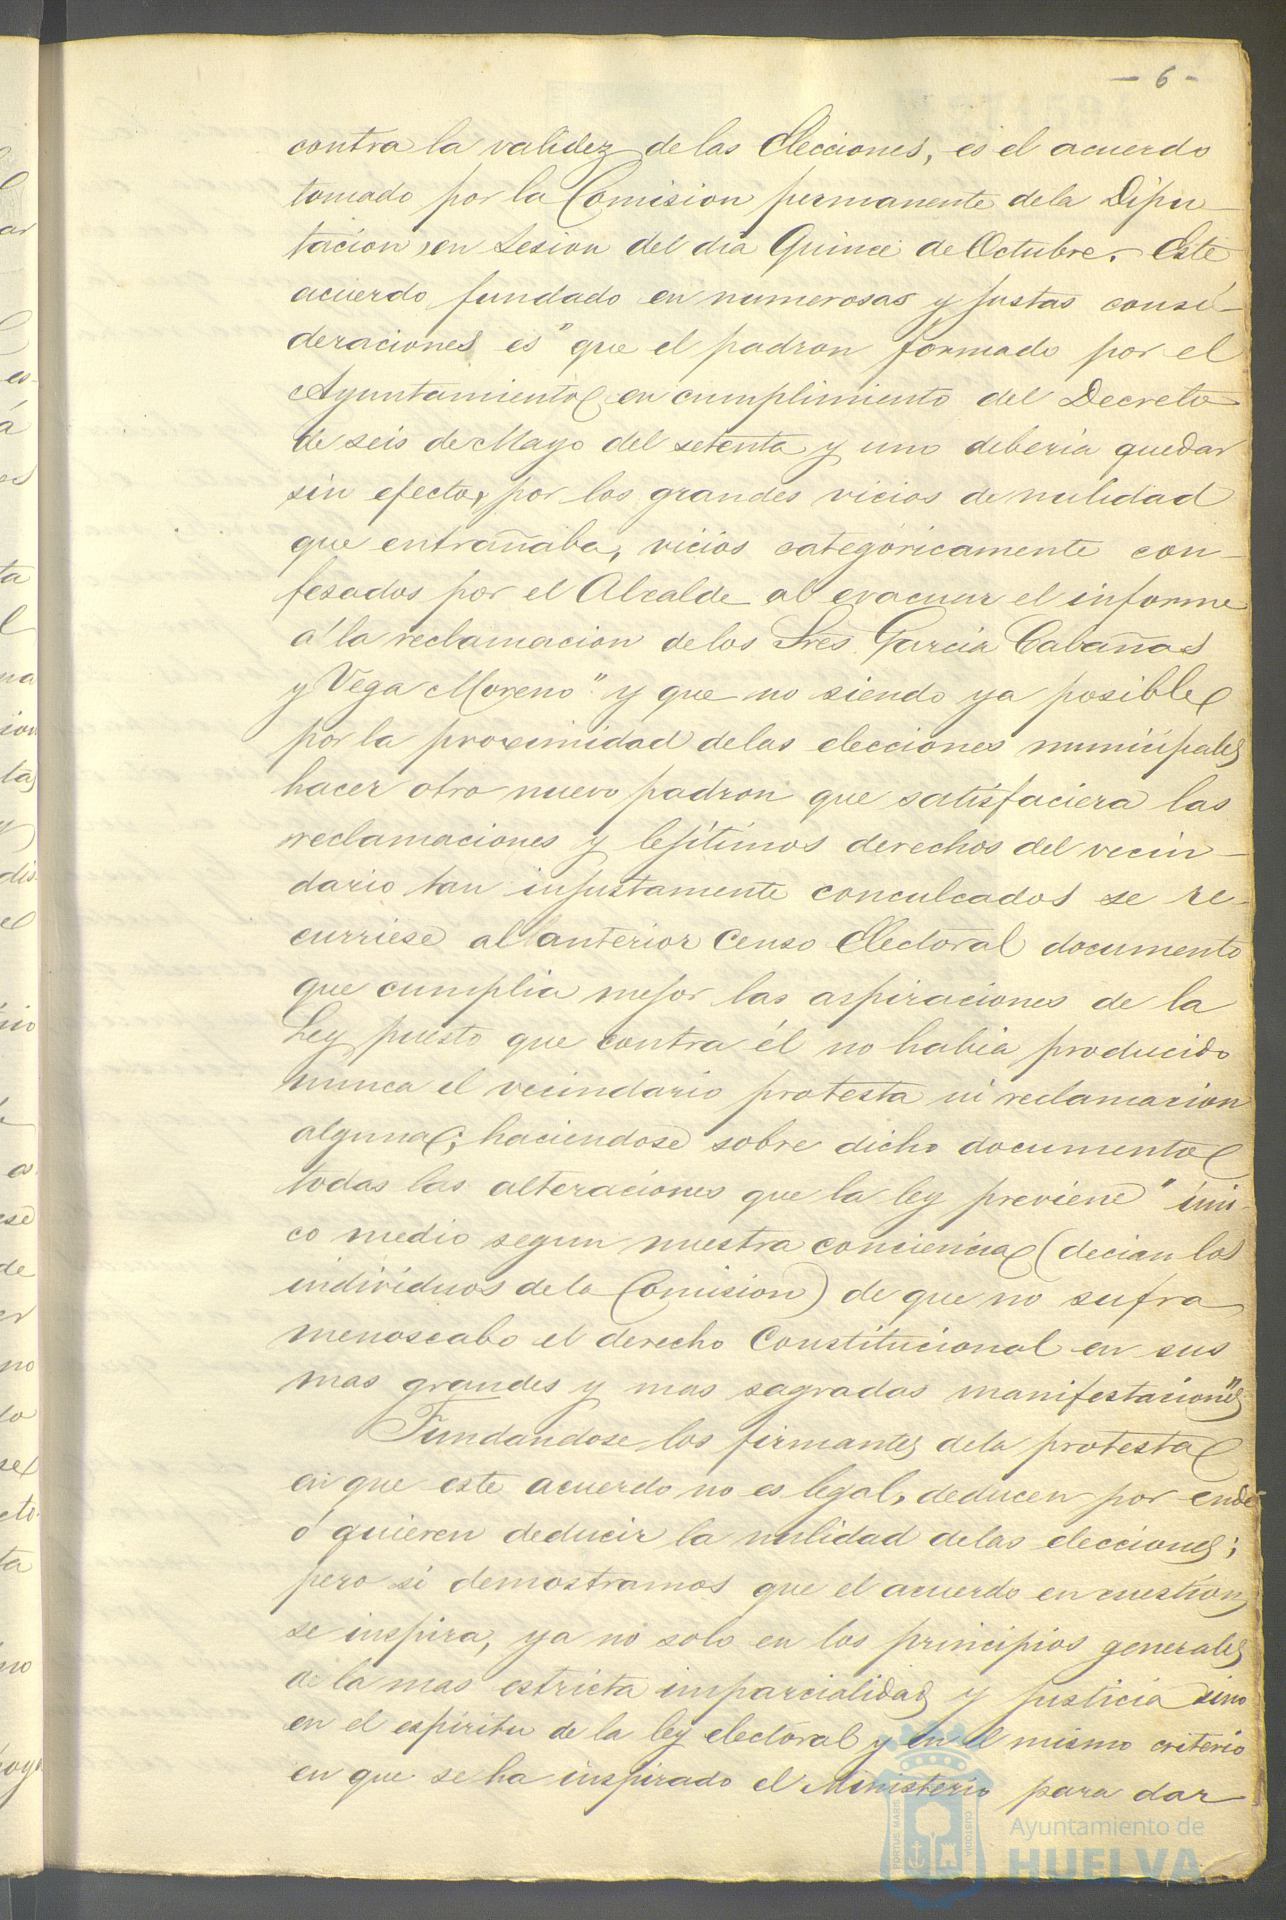 - 6 -
contra la validez de las Elecciones, es el acuerdo
tomado por la Comision permanente de la Dipu-
tacion, en sesion del dia Quince de Octubre. Este
acuerdo fundado en numerosas y justas consi-
deraciones es "que el padron formado por el
Ayuntamiento en cumplimiento del Decreto
de seis de Mayo del setenta y uno deberia quedar
sin efecto, por los grandes vicios de nulidad
que entrañaba, vicios categóricamente con-
fesados por el Alcalde al evacuar el informe
á la reclamacion de los Sres. Garcia Cabañas
y Vega Moreno" y que no siendo ya posible
por la proximidad de las elecciones municipales
hacer otro nuevo padron que satisfaciera las
reclamaciones y lejítimos derechos del vecin-
dario tan injustamente conculcados se re-
curriese al anterior Censo Electoral documento
que cumplia mejor las aspiraciones de la
Ley puesto que contra él no habia producido
nunca el vecindario protesta ni reclamacion
alguna; haciendose sobre dicho documento
todas las alteraciones que la ley previene "úni-
co medio segun nuestra conciencia (decian los
individuos de la Comision) de que no sufra
menoscabo el derecho Constitucional en sus
mas grandes y mas sagradas manifestaciones"
Fundandose los firmantes de la protesta
en que este acuerdo no es legal, deducen por ende
ó quieren deducir la nulidad de las elecciones;
pero si demostramos que el acuerdo en cuestion
se inspira, ya no solo en los principios generales
de la mas estricta imparcialidad y justicia sino
en el espiritu de la ley electoral y en el mismo criterio
en que se ha inspirado el Ministerio para dar
PORTUS MARIS
CUSTODIA
Ayuntamiento de
HUELVA